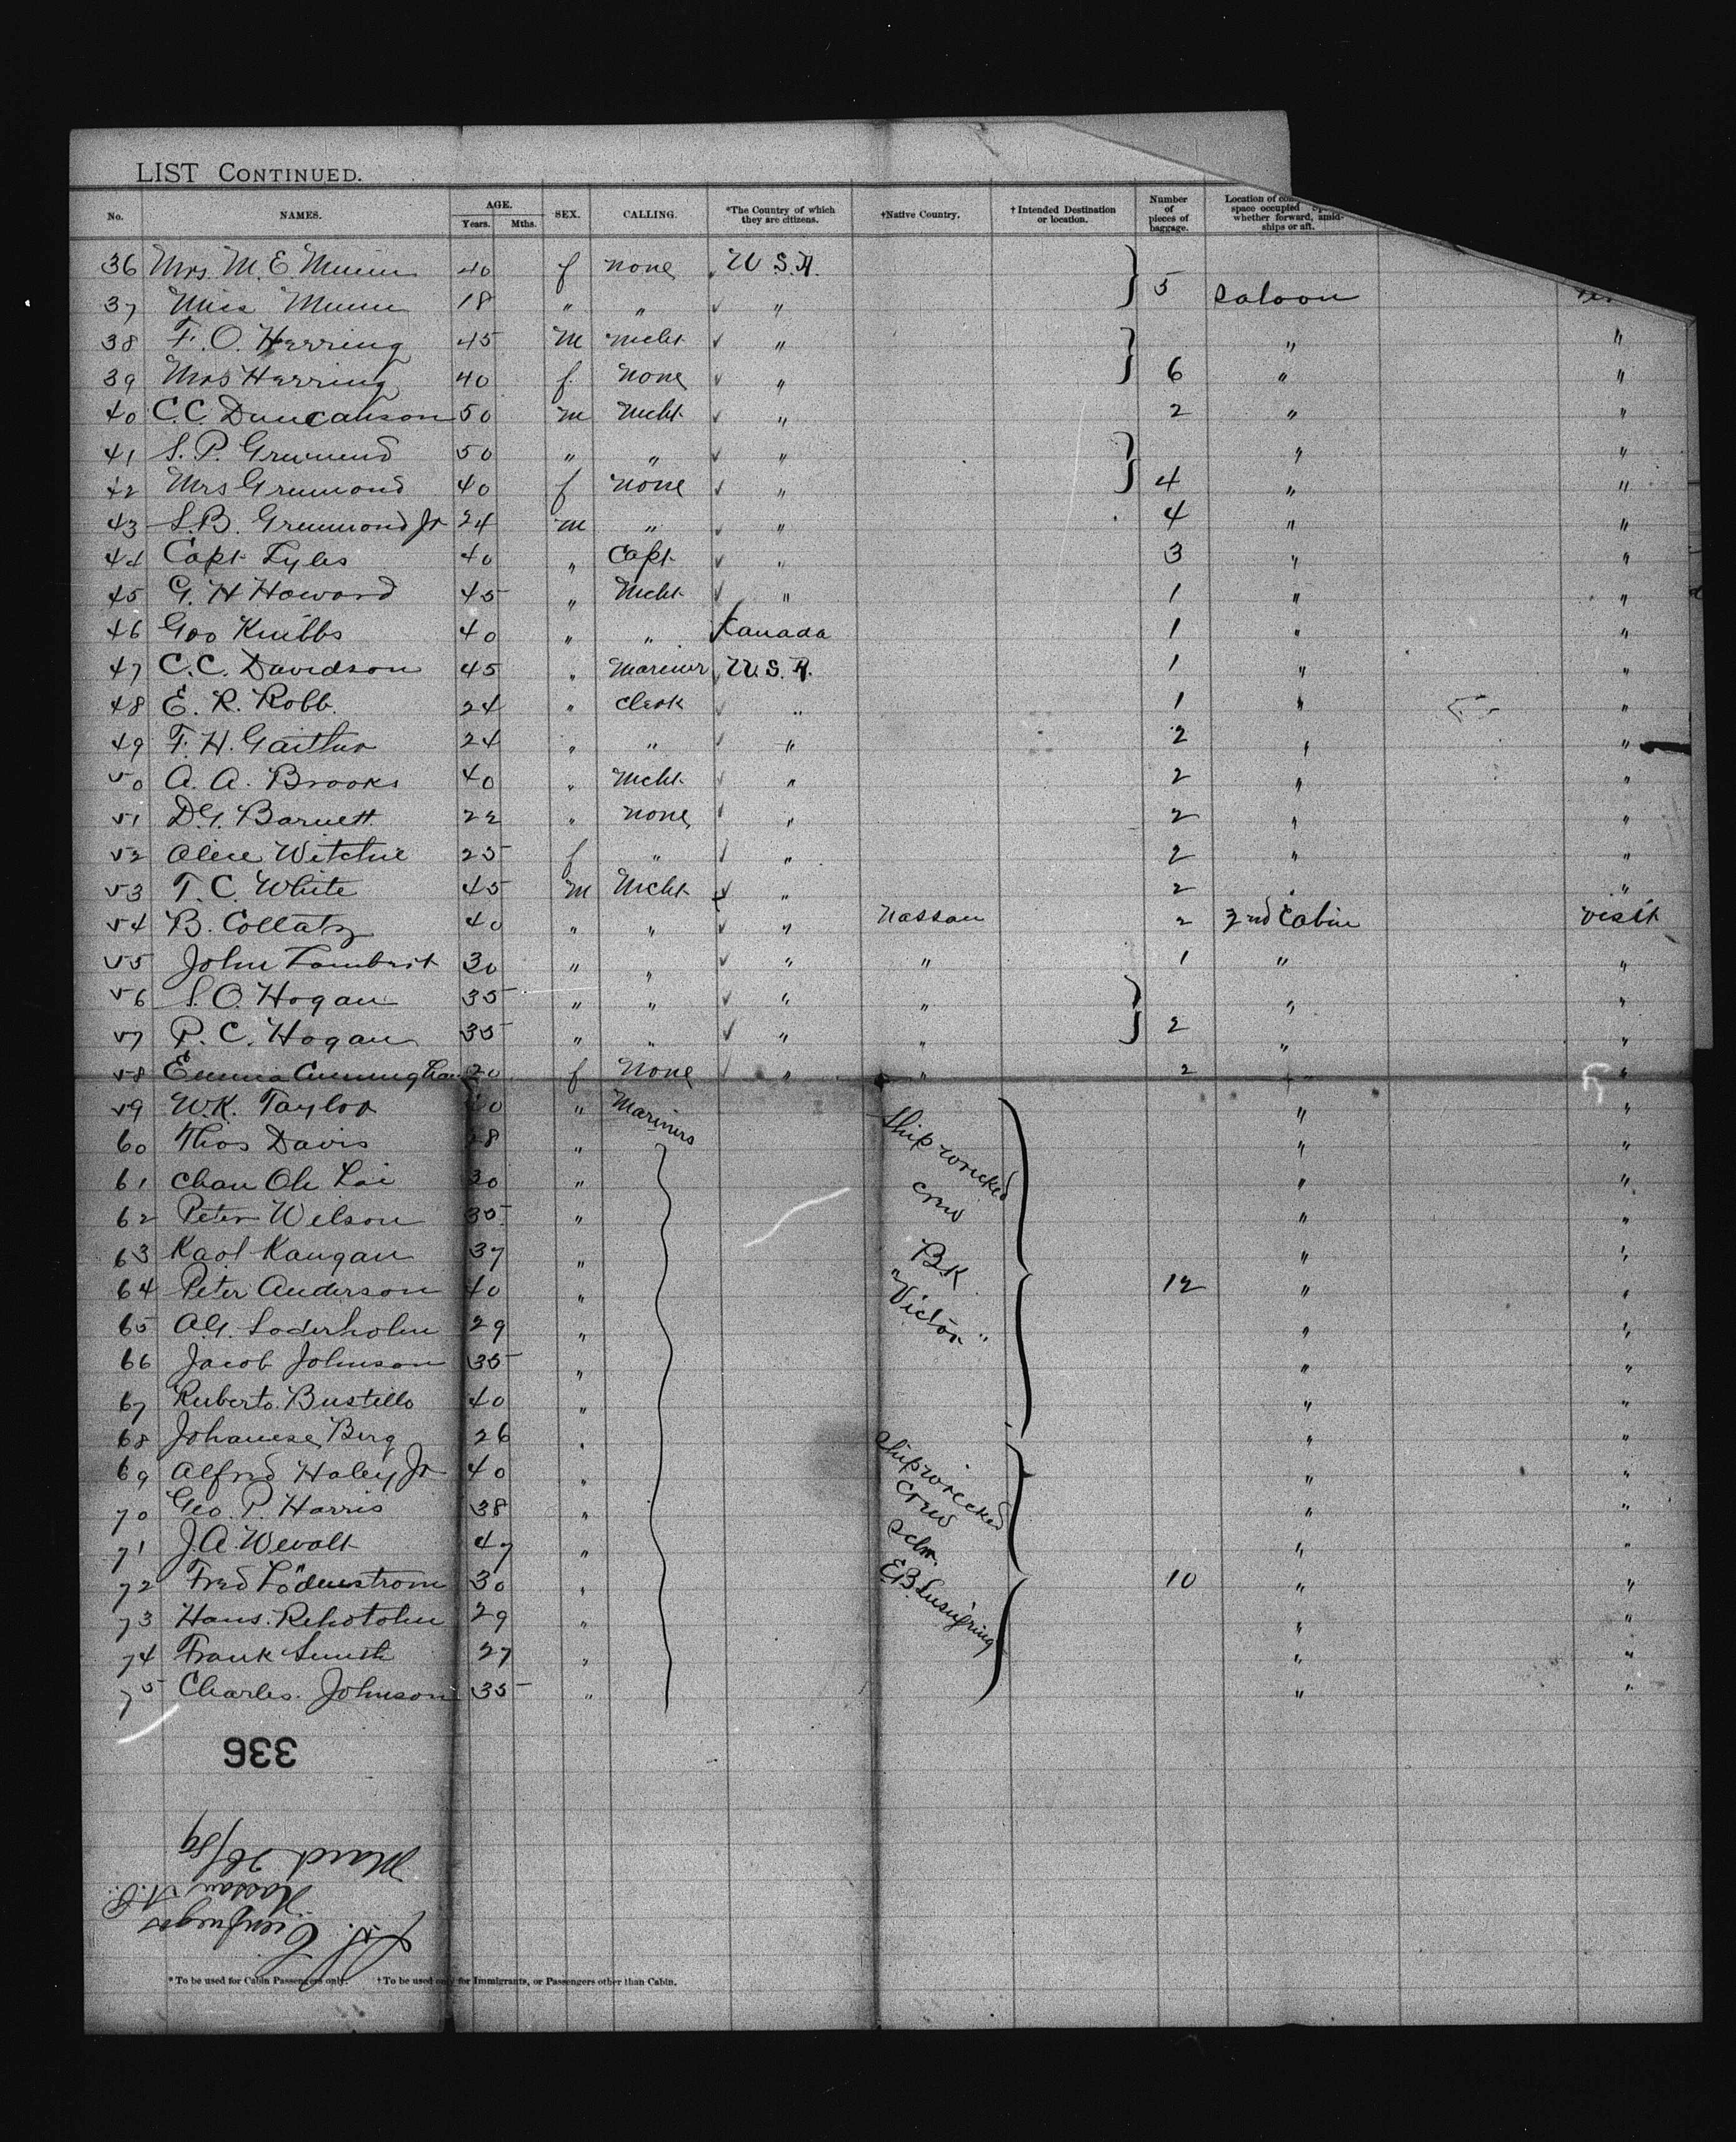 LIST CONTINUED.
No. NAMES. AGE. Years. Mths. SEX. CALLING. *The Country of which they are citizens. †Native Country. †Intended Destination or location. Number of pieces of baggage. Location of space occupied whether forward, amid-ships or aft.
36 Mrs. M. E. Munn 40 f none U.S.A.
37 Miss Munn 18 " " " 5 Saloon
38 F. O. Herring 45 M Mcht " " "
39 Mrs Herring 40 f. none " 6 " "
40 C.C. Duncanson 50 m Mcht " 2 " "
41 S. P. 50 " " " " "
42 Mrs Grummond 40 f none " 4 " "
43 S.B. Grummond Jr 24 m " " 4 " "
44 Capt Lyles 40 " Capt " 3 " "
45 G. H Howard 45 " Mcht " 1 " "
46 Geo Knibbs 40 " " Kanada 1 " "
47 C.C. Davidson 45 " Mariner U.S.A. 1 " "
48 E. R. Robb. 24 " clerk " 1 " "
49 F. H. Gaither 24 " " " 2 " "
50 A. A. Brooks 40 " Mcht " 2 " "
51 D.G. Barnett 22 " none " 2 " "
52 Alice Witchie 25 f " " 2 " "
53 T. C. White 45 m Mcht " 2 " "
54 B. Collatz 40 " " " Nassau 2 2nd Cabin visit
55 John 30 " " " " 1 " "
56 S. O. Hogan 35 " " " " " "
57 P. C. Hogan 35 " " " " 2 " "
58 Emma Cunningham 20 f None " " 2 " "
59 W.K. Taylor " Mariners Shipwrecked " "
60 Thos Davis " " "
61 Chan Oh Lai 30 " crew " "
62 Peter Wilson 35 " " "
63 Karl Kangan 37 " BK " "
64 Peter Anderson 40 " "Victor" 12 " "
65 A.G. Soderholm 29 " " "
66 Jacob Johnson 35 " " "
67 Ruberto Bustillo 40 " " "
68 Johanese Berg 26 " " "
69 Alfred Haley Jr 40 " Shipwrecked " "
70 Geo. P. Harris 38 " crew " "
71 J.A. Wevalt 47 " Schr. " "
72 Fred Lödenstrom 30 " E.B. 10 " "
73 Hans. 29 " " "
74 Frank Smith 27 " " "
75 Charles. Johnson 35 " " "
336
March 26/89
Nassau N.P.
Cienfuegos
S.S.
*To be used for Cabin Passengers only. †To be used only for Immigrants, or Passengers other than Cabin.